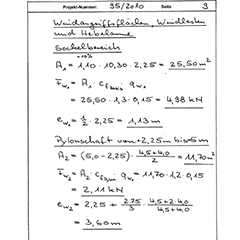 Projekt-Nummer: 95/2010 Seite 9
Windangriffsflächen, Windlasten
und Hebelarme
Sockelbereich
A₁ = 1,10 · 10,30 · 2,25 = 25,50 m²
Fw₁ = A₁ · cf · qw
= 25,50 · 1,3 · 0,15 = 4,98 kN
ew₁ = 1/2 · 2,25 = 1,13 m
Pylonschaft von +2,25 m bis 5 m
A₂ = (5,0 - 2,25) · (4,5+4,0)/2 = 11,70 m²
Fw₂ = A₂ · cf · qw = 11,70 · 1,2 · 0,15
= 2,11 kN
ew₂ = 2,25 + 2,75/3 · (4,5+2·4,0)/(4,5+4,0)
= 3,60 m